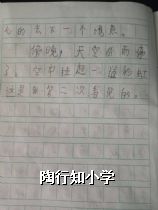 心的去下一个地点。
傍晚，天空外雨停
了，空中挂起一道彩虹
这是我第二次看见的。
陶行知小学